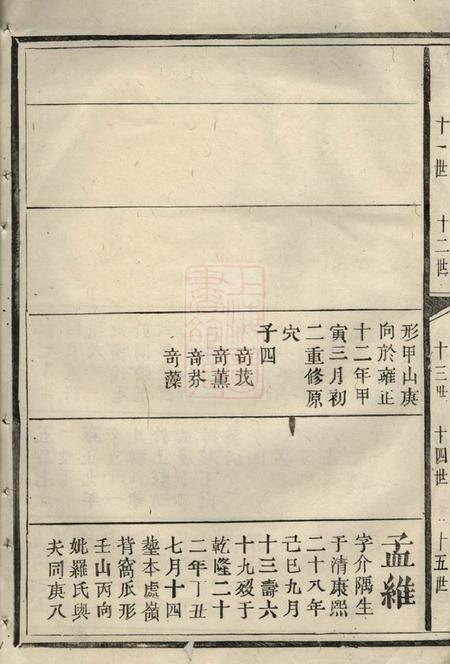 十一世
十二世
十三世
十四世
十五世
形甲山庚
向於雍正
十二年甲
寅三月初
二重修原
穴
子四
竒茂
竒薰
竒芬
竒藻
孟維
字介隅生
于清康熙
二十八年
己巳九月
十三壽六
十九歿于
乾隆二十
二年丁丑
七月十四
塟本處嶺
背窩瓜形
壬山丙向
妣羅氏與
夫同庚八
上海
圖書館藏